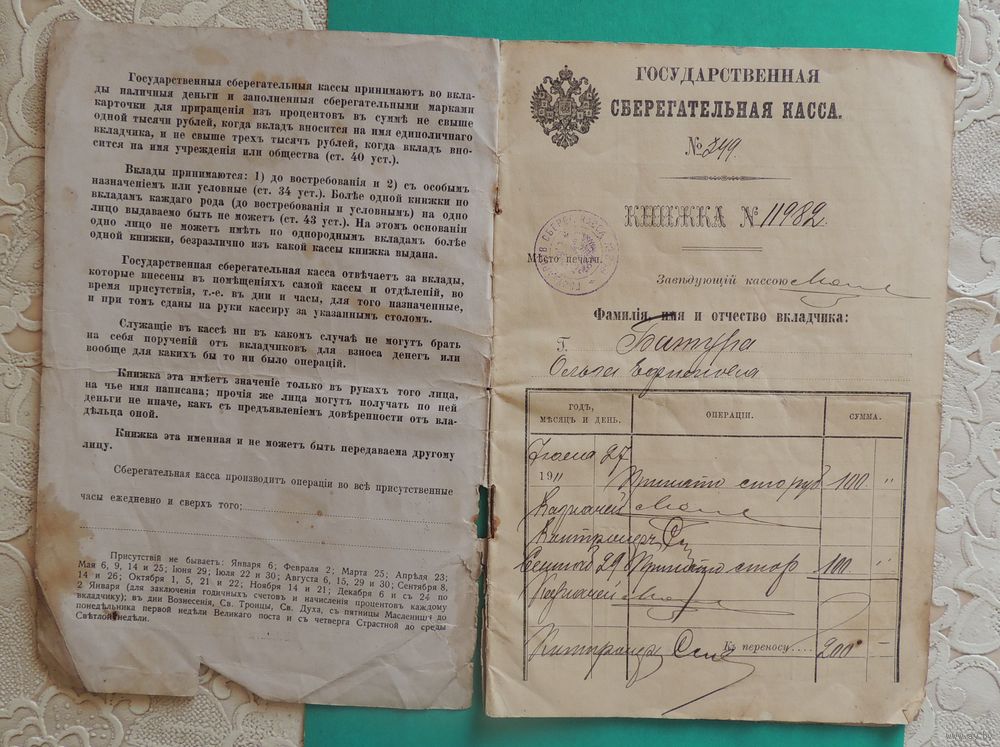 Государственныя сберегательныя кассы принимаютъ во вкла-
ды наличныя деньги и заполненныя сберегательными марками
карточки для приращенія изъ процентовъ въ суммѣ не свыше
одной тысячи рублей, когда вкладъ вносится на имя единоличнаго
вкладчика, и не свыше трехъ тысячъ рублей, когда вкладъ вно-
сится на имя учрежденія или общества (ст. 40 уст.).
Вклады принимаются: 1) до востребованія и 2) съ особымъ
назначеніемъ или условные (ст. 34 уст.). Болѣе одной книжки по
вкладамъ каждаго рода (до востребованія и условнымъ) на одно
лицо выдаваемо быть не можетъ (ст. 43 уст.). На этомъ основаніи
одно лицо не можетъ имѣть по однороднымъ вкладамъ болѣе
одной книжки, безразлично изъ какой кассы книжка выдана.
Государственная сберегательная касса отвѣчаетъ за вклады,
которые внесены въ помѣщеніяхъ самой кассы и отдѣленій, во
время присутствія, т.-е. въ дни и часы, для того назначенные,
и при томъ сданы на руки кассиру за указаннымъ столомъ.
Служащіе въ кассѣ ни въ какомъ случаѣ не могутъ брать
на себя порученій отъ вкладчиковъ для взноса денегъ или
вообще для какихъ бы то ни было операцій.
Книжка эта имѣетъ значеніе только въ рукахъ того лица,
на чье имя написана; прочія же лица могутъ получать по ней
деньги не иначе, какъ съ предъявленіемъ довѣренности отъ вла-
дѣльца оной.
Книжка эта именная и не можетъ быть передаваема другому
лицу.
Сберегательная касса производитъ операціи во всѣ присутственные
часы ежедневно и сверхъ того:
Присутствій не бываетъ: Января 6; Февраля 2; Марта 25; Апрѣля 23;
Мая 6, 9, 14 и 25; Іюня 29; Іюля 22 и 30; Августа 6, 15, 29 и 30; Сентября 8,
14 и 26; Октября 1, 5, 21 и 22; Ноября 14 и 21; Декабря 6 и съ 24 по
2 Января (для заключенія годичныхъ счетовъ и начисленія процентовъ каждому
вкладчику); въ дни Вознесенія, Св. Троицы, Св. Духа, съ пятницы Масленицы до
понедѣльника первой недѣли Великаго поста и съ четверга Страстной до среды
Свѣтлой недѣли.
ГОСУДАРСТВЕННАЯ
СБЕРЕГАТЕЛЬНАЯ КАССА.
№ 249.
КНИЖКА № 11982
Мѣсто печати.
Завѣдующій кассою
Фамилія, имя и отчество вкладчика:
Г. Батура
Ольга
ГОДЪ, МѢСЯЦЪ И ДЕНЬ. ОПЕРАЦІИ. СУММА.
27
1911 Принято сто руб 100 "
Казначей
Контролеръ
29 Принято сто р 100 "
Казначей
Контролеръ Къ переносу..... 200 =
www.ay.by